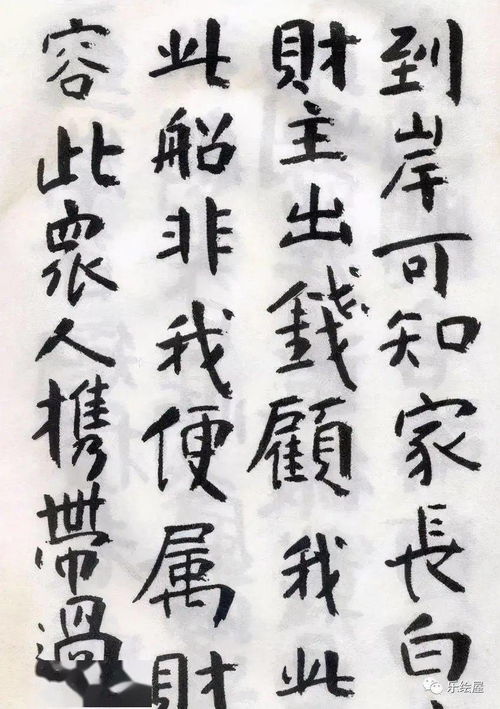 到岸可知家長自
財主出錢顧我此
此船非我便属財
容此眾人携帶過
乐绘屋